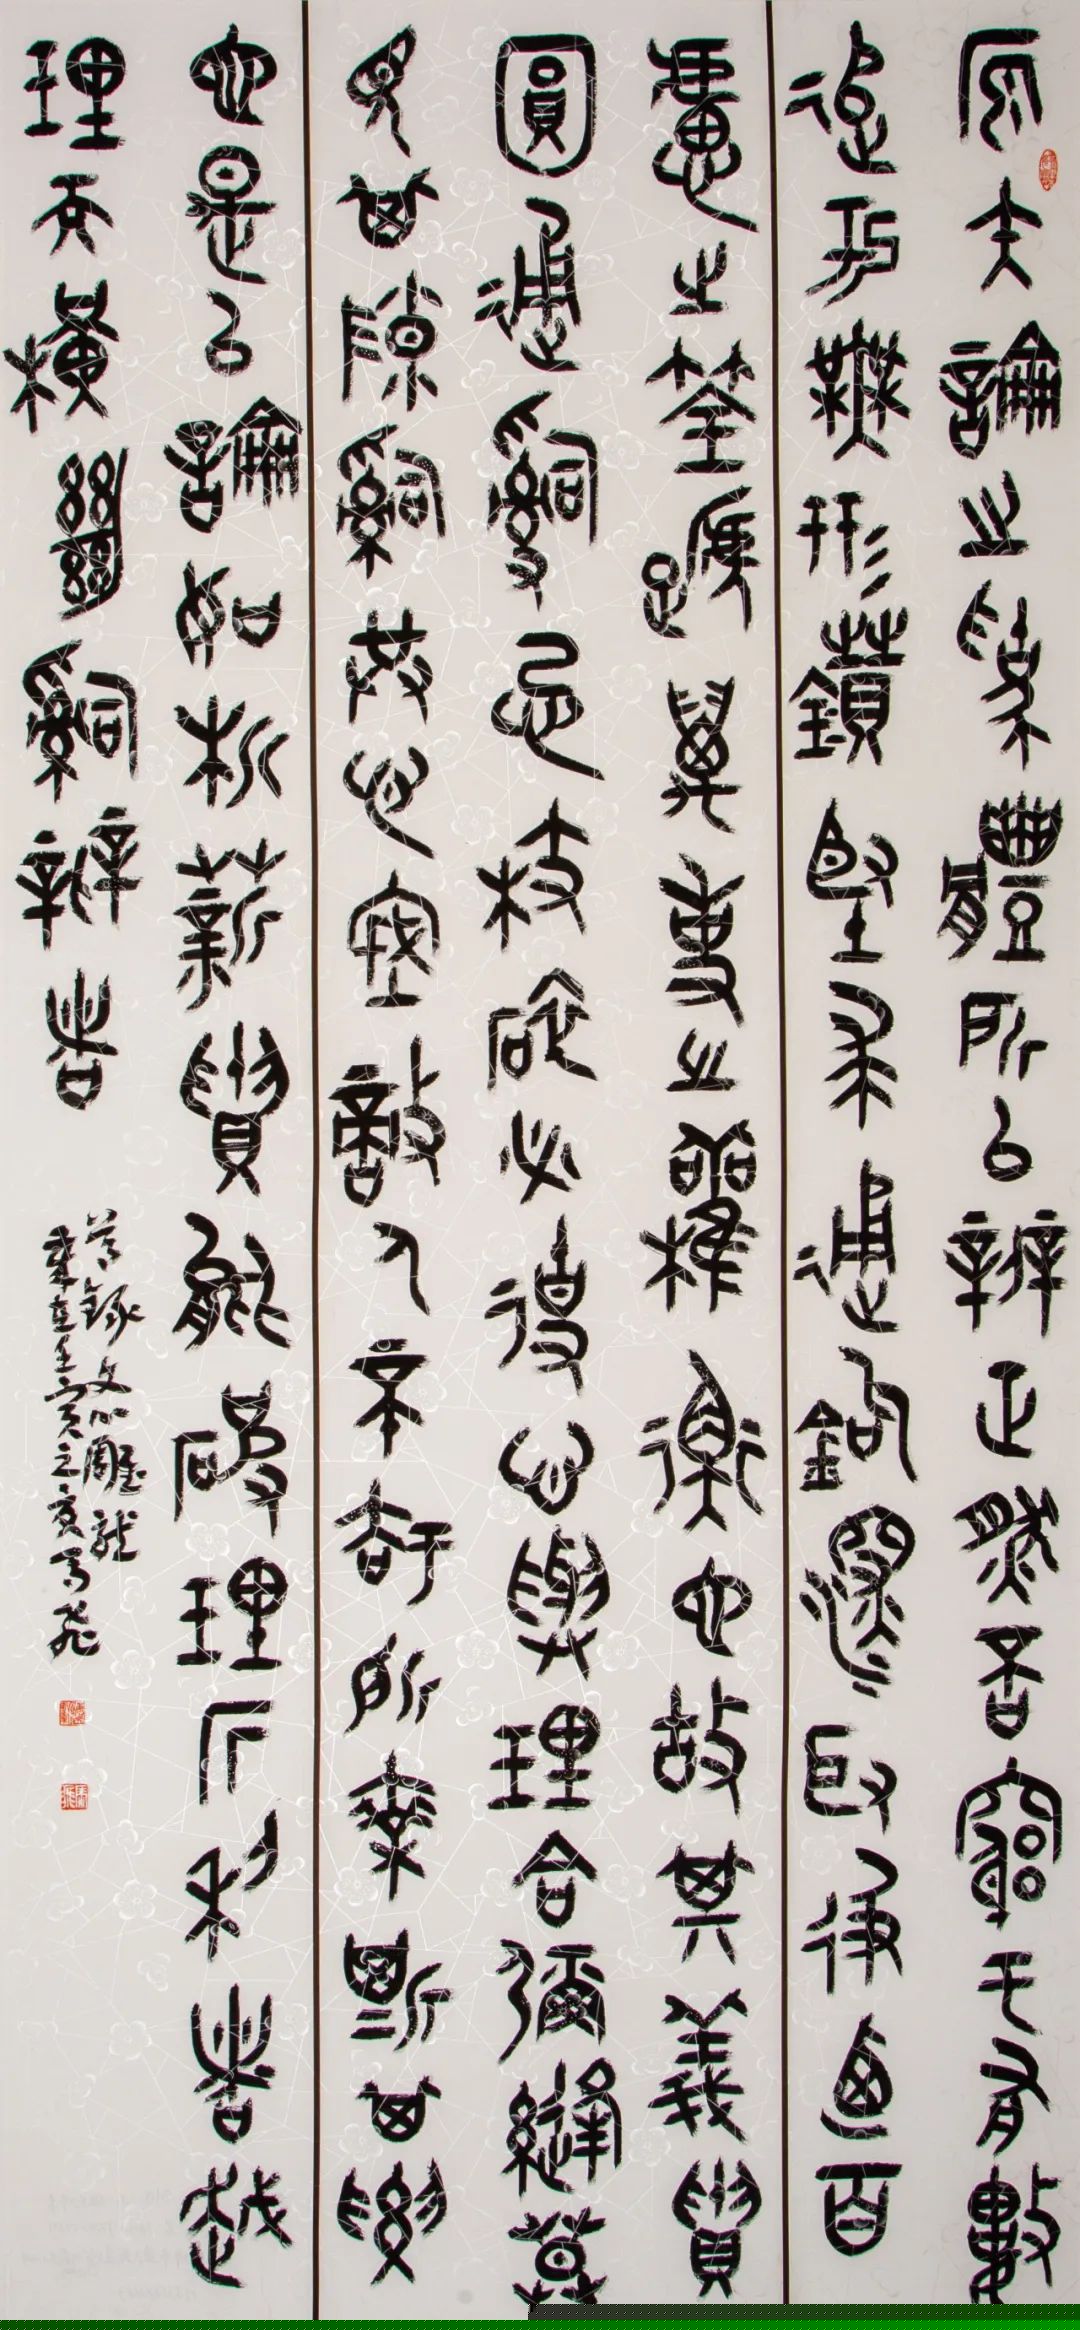 原夫論之為體所以辨正然否窮于有數
追于無形鑽堅求通鉤深取極迺百
慮之筌蹄萬事之權衡也故其義貴
圓通辭忌枝碎必使心與理合彌縫莫
見其隙辭共心密敵人不知所乘斯其要
也是以論如析薪貴能破理斤利者越
理而橫斷辭辨者
節錄文心雕龍
歲在壬寅之夏